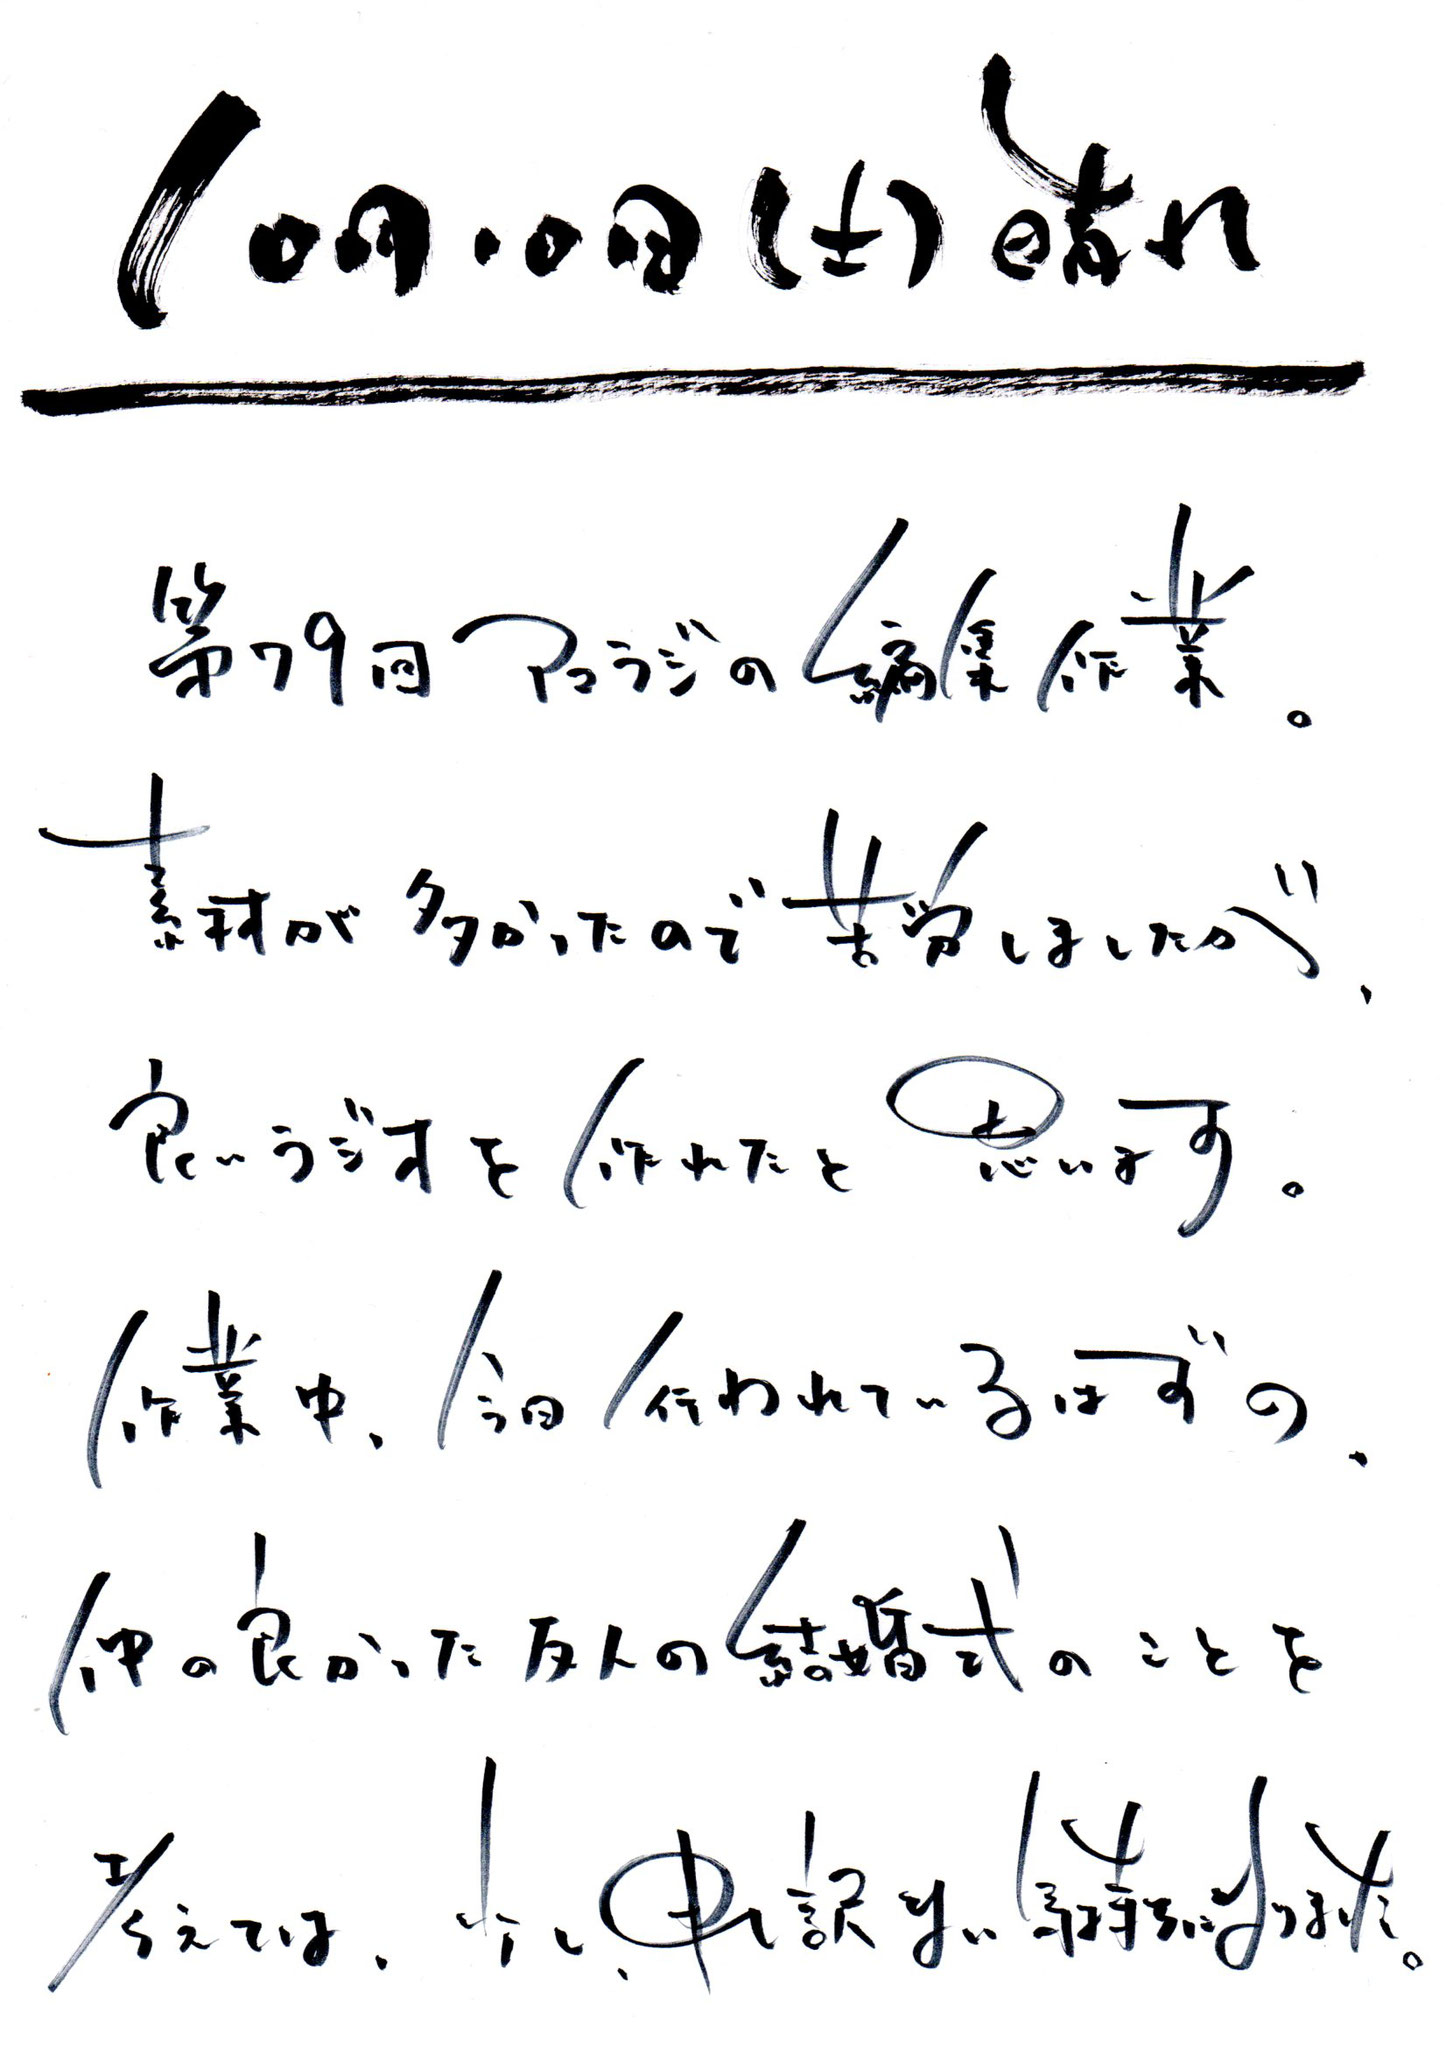 10月10日(土)晴れ
第79回アコラジの編集作業。
素材が多かったので苦労しましたが、
良いラジオを作れたと思います。
作業中、今日行われているはずの、
仲の良かった友人の結婚式のことを
考えては、少し、申し訳ない気持ちになりました。